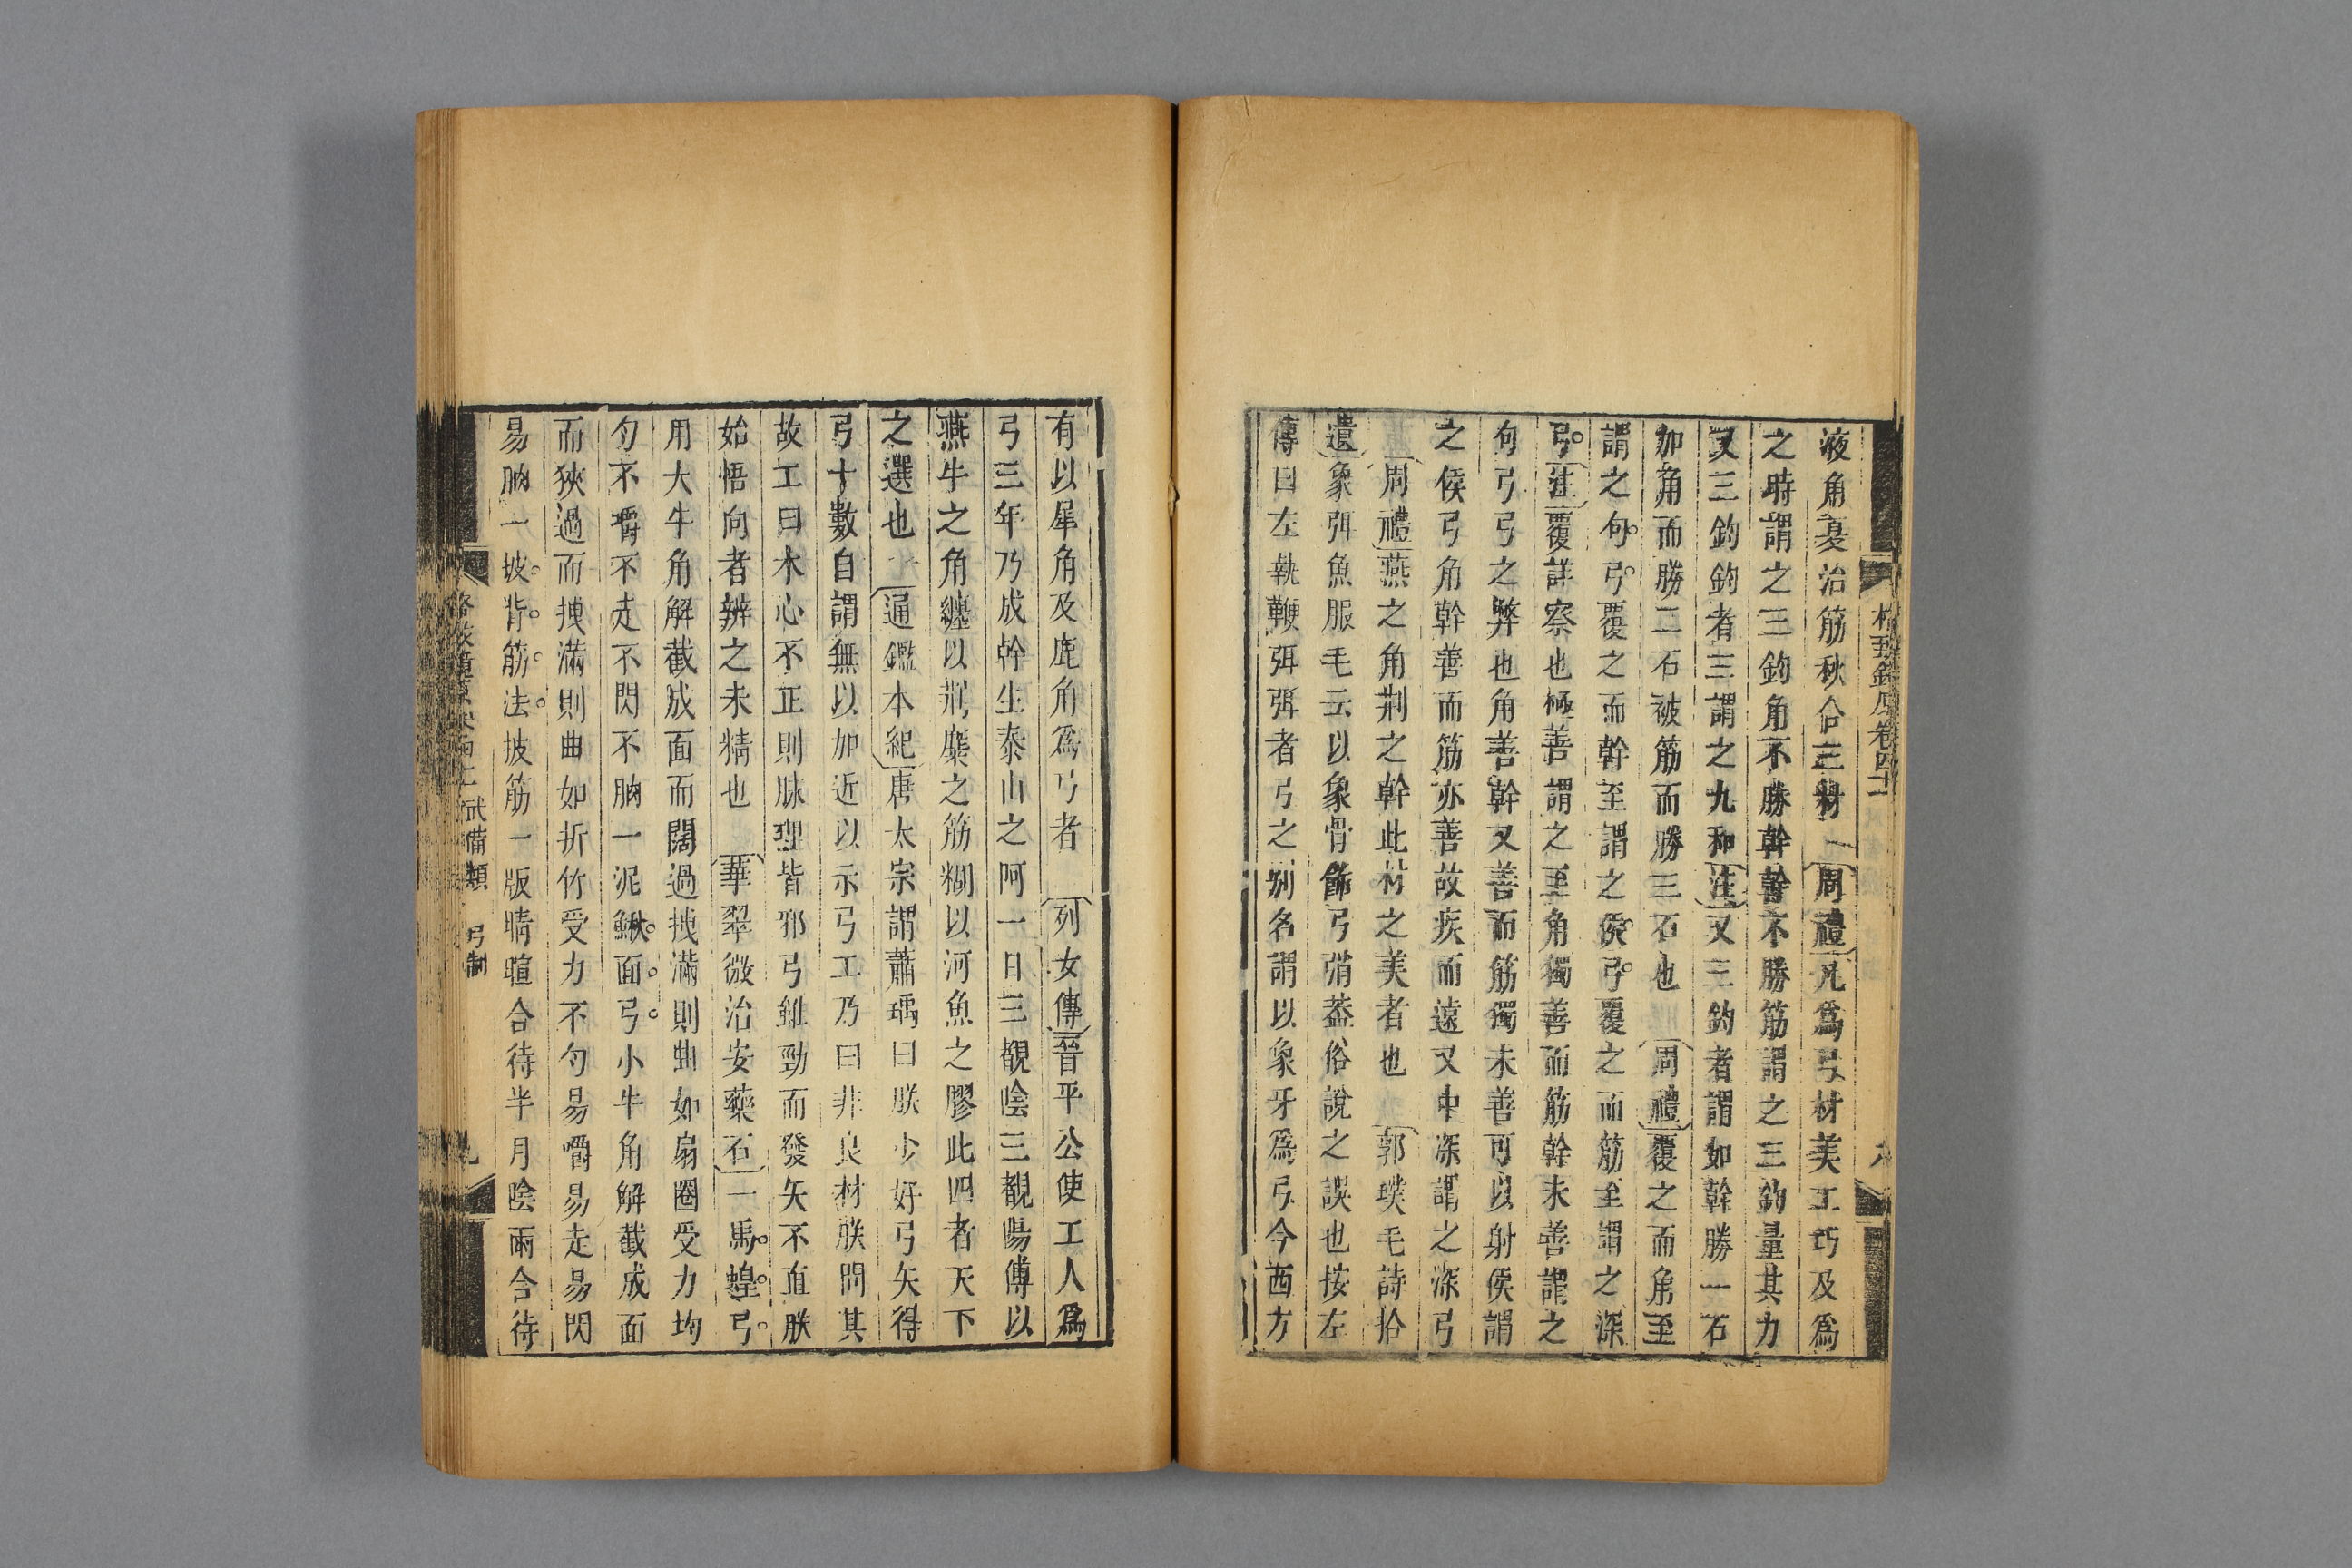 格致鏡原卷四十一
液角夏治筋秋合三材　周禮凡爲弓材美工巧及爲
之時謂之三鈞角不勝幹幹不勝筋謂之三鈞量其力
又三鈞鈞者三謂之九和注又三鈞者謂如幹勝一石
加角而勝二石被筋而勝三石也　周禮覆之而角至
謂之句弓覆之而幹至謂之侯弓覆之而筋至謂之深
弓注覆詳察也極善謂之至角獨善而筋幹未善謂之
句弓弓之弊也角善幹又善而筋獨未善可以射侯謂
之侯弓角幹善而筋亦善故疾而遠又中深謂之深弓
周禮燕之角荆之幹此材之美者也　郭璞毛詩拾
遺象弭魚服毛云以象骨飾弓弰葢俗說之誤也按左
傳曰左執鞭弭弭者弓之別名謂以象牙爲弓今西方
有以犀角及鹿角爲弓者　列女傳晉平公使工人爲
弓三年乃成幹生泰山之阿一日三覩陰三覩陽傅以
燕牛之角纏以荆麋之筋糊以河魚之膠此四者天下
之選也　通鑑本紀唐太宗謂蕭瑀曰朕少好弓矢得
弓十數自謂無以加近以示弓工乃曰非良材朕問其
故工曰木心不正則脉理皆邪弓雖勁而發矢不直朕
始悟向者辨之未精也　華翠微治安藥石一馬蝗弓
用大牛角解截成面而闊過拽滿則曲如扇圈受力均
勻不嚼不走不閃不朒一泥鰍面弓小牛角解截成面
而狹過而拽滿則曲如折竹受力不勻易嚼易走易閃
易朒一披背筋法披筋一版晴暄合待半月陰雨合待
武備類　弓制